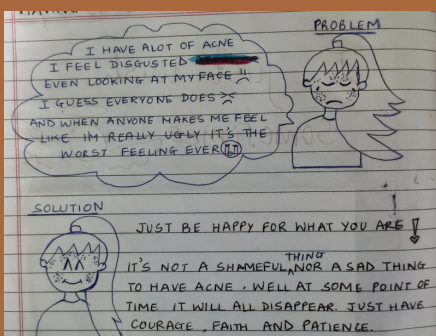 PROBLEM
I HAVE ALOT OF ACNE
I FEEL DISGUSTED
EVEN LOOKING AT MY FACE !!
I GUESS EVERYONE DOES
AND WHEN ANYONE MAKES ME FEEL
LIKE IM REALLY UGLY IT'S THE
WORST FEELING EVER
SOLUTION
JUST BE HAPPY FOR WHAT YOU ARE !
IT'S NOT A SHAMEFUL THING NOR A SAD THING
TO HAVE ACNE . WELL AT SOME POINT OF
TIME IT WILL ALL DISAPPEAR. JUST HAVE
COURAGE , FAITH AND PATIENCE.